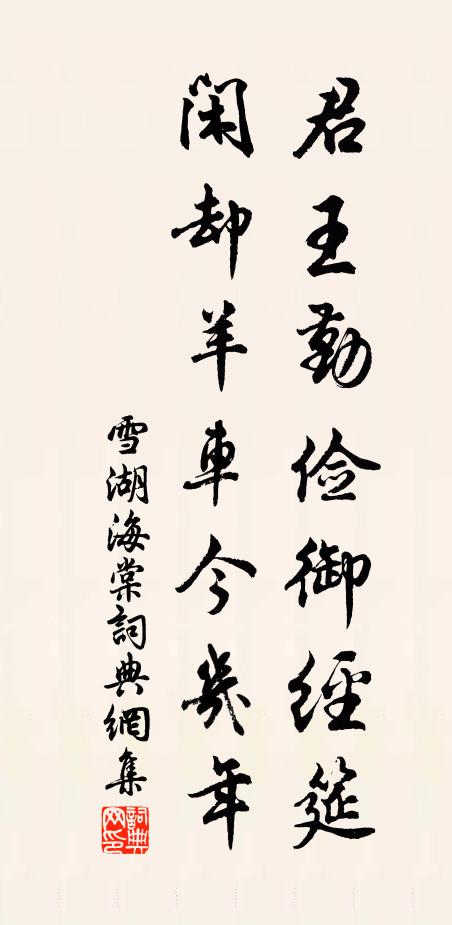 君王勤俭御經筵
閑却羊車今幾年
雪湖海棠詞典網集
詞典网印